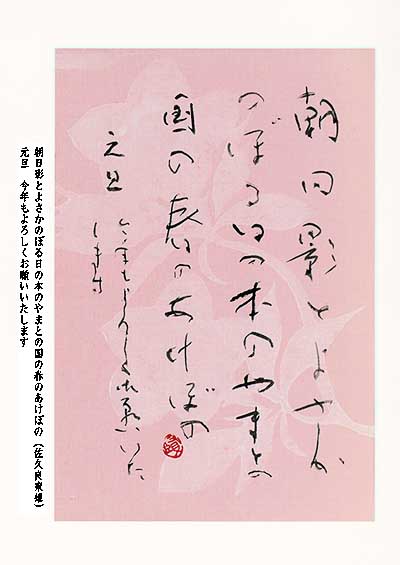 朝日影とよさか
のぼる日の本のやまとの
国の春のあけぼの
元旦
今年もよろしく御願いいた
します
朝日影とよさかのぼる日の本のやまとの国の春のあけぼの（佐久良東雄）
元旦　今年もよろしくお願いいたします